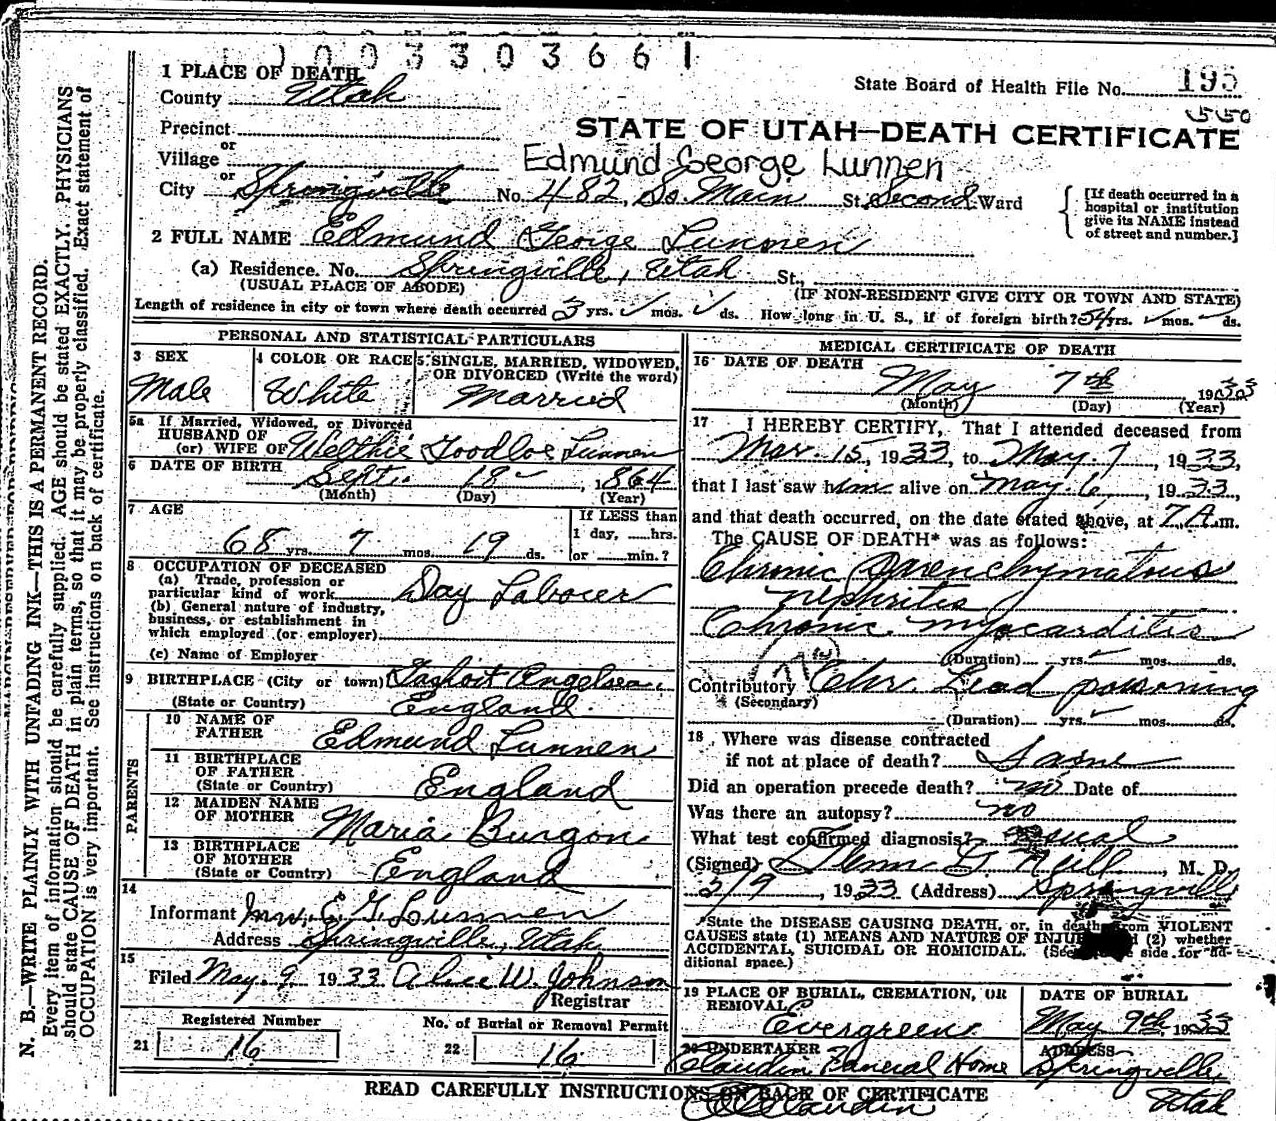 1003303661
1 PLACE OF DEATH
State Board of Health File No. 195
County Utah
550
Precinct
or
STATE OF UTAH—DEATH CERTIFICATE
Village
Edmund George Lunnen
or
City Springville No. 482, So. Main St. Second Ward
[If death occurred in a hospital or institution give its NAME instead of street and number.]
2 FULL NAME Edmund George Lunnen
(a) Residence. No. Springville, Utah St.,
(USUAL PLACE OF ABODE)
(IF NON-RESIDENT GIVE CITY OR TOWN AND STATE)
Length of residence in city or town where death occurred 3 yrs. mos. ds. How long in U. S., if of foreign birth? 54 yrs. mos. ds.
PERSONAL AND STATISTICAL PARTICULARS
3 SEX
Male
4 COLOR OR RACE
White
5 SINGLE, MARRIED, WIDOWED,
OR DIVORCED (Write the word)
Married
5a If Married, Widowed, or Divorced
HUSBAND OF
(or) WIFE OF Welthie Goodloe Lunnen
6 DATE OF BIRTH Sept. 18 , 1864
(Month) (Day) (Year)
7 AGE
68 yrs. 7 mos. 19 ds.
If LESS than
1 day, hrs.
or min.?
8 OCCUPATION OF DECEASED
(a) Trade, profession or
particular kind of work Day Laborer
(b) General nature of industry,
business, or establishment in
which employed (or employer)
(c) Name of Employer
9 BIRTHPLACE (City or town)
(State or Country) England.
PARENTS
10 NAME OF
FATHER Edmund Lunnen
11 BIRTHPLACE
OF FATHER
(State or Country) England
12 MAIDEN NAME
OF MOTHER Maria Burgon
13 BIRTHPLACE
OF MOTHER
(State or Country) England
14
Informant Mrs. E. G. Lunnen
Address Springville, Utah
15
Filed May 9 1933 Alice W. Johnson
Registrar
Registered Number
21 16
No. of Burial or Removal Permit
22 16
MEDICAL CERTIFICATE OF DEATH
16 DATE OF DEATH
May 7th 1933
(Month) (Day) (Year)
17 I HEREBY CERTIFY, That I attended deceased from
Mar. 15, 1933, to May. 7, 1933,
that I last saw him alive on May 6, 1933,
and that death occurred, on the date stated above, at 7 A.m.
The CAUSE OF DEATH* was as follows:
Chronic Parenchymatous
nephritis
Chronic myocarditis
(Duration) yrs. mos. ds.
Contributory Chr. Lead poisoning
(Secondary)
(Duration) yrs. mos. ds.
18 Where was disease contracted
if not at place of death? Same
Did an operation precede death? no Date of
Was there an autopsy? no
What test confirmed diagnosis? usual
(Signed) Glenn G. Neill, M. D.
5/9, 1933 (Address) Springville
*State the DISEASE CAUSING DEATH, or, in death from VIOLENT
CAUSES state (1) MEANS AND NATURE OF INJU (2) whether
ACCIDENTAL, SUICIDAL OR HOMICIDAL. (See side for ad-
ditional space.)
19 PLACE OF BURIAL, CREMATION, OR
REMOVAL
Evergreen
DATE OF BURIAL
May 9th, 1933
20 UNDERTAKER
Claudin Funeral Home
ADDRESS
Springville,
Utah
READ CAREFULLY INSTRUCTIONS ON BACK OF CERTIFICATE
Claudin
N. B.—WRITE PLAINLY WITH UNFADING INK—THIS IS A PERMANENT RECORD.
Every item of information should be carefully supplied. AGE should be stated EXACTLY. PHYSICIANS
should state CAUSE OF DEATH in plain terms, so that it may be properly classified. Exact statement of
OCCUPATION is very important. See instructions on back of certificate.